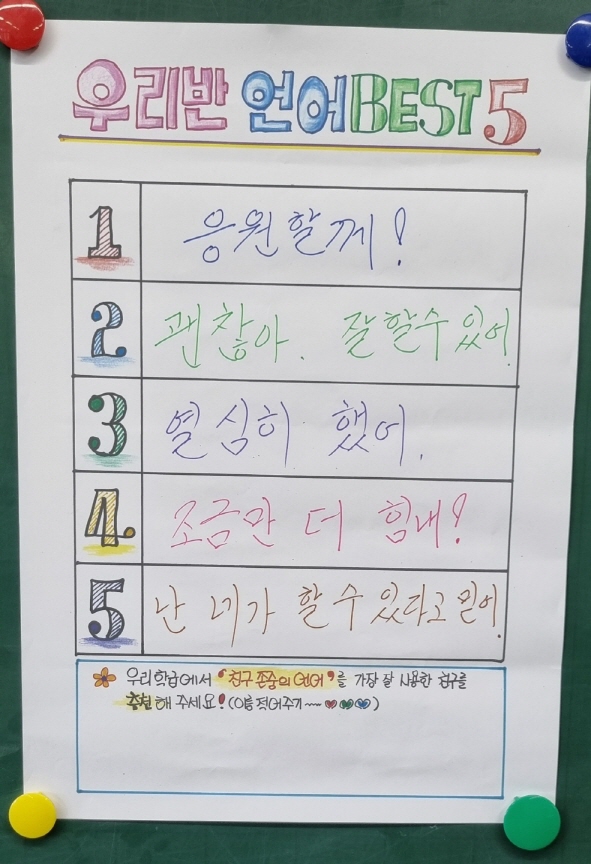 우리반 언어BEST5
1 응원할께!
2 괜찮아. 잘할수있어.
3 열심히 했어.
4 조금만 더 힘내!
5 난 네가 할 수 있다고 믿어.
우리학급에서 '친구 존중의 언어'를 가장 잘 사용한 친구를
추천해 주세요! (이름 적어주기~~ ♥♥♥)